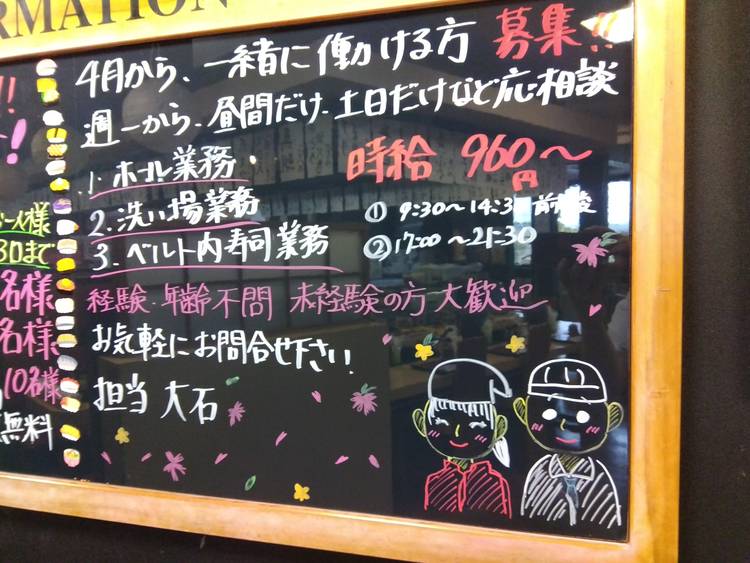 RMATION
4月から、一緒に働ける方 募集!!
週一から、昼間だけ、土日だけなど応相談
1. ホール業務
時給 960円〜
2. 洗い場業務
① 9:30〜14:30 前後
3. ベルト内寿司業務
② 17:00 〜21:30
経験・年齢不問 未経験の方大歓迎
お気軽にお問合せ下さい!
担当 大石
!!
!
様
30まで
名様
名様
10名様
無料